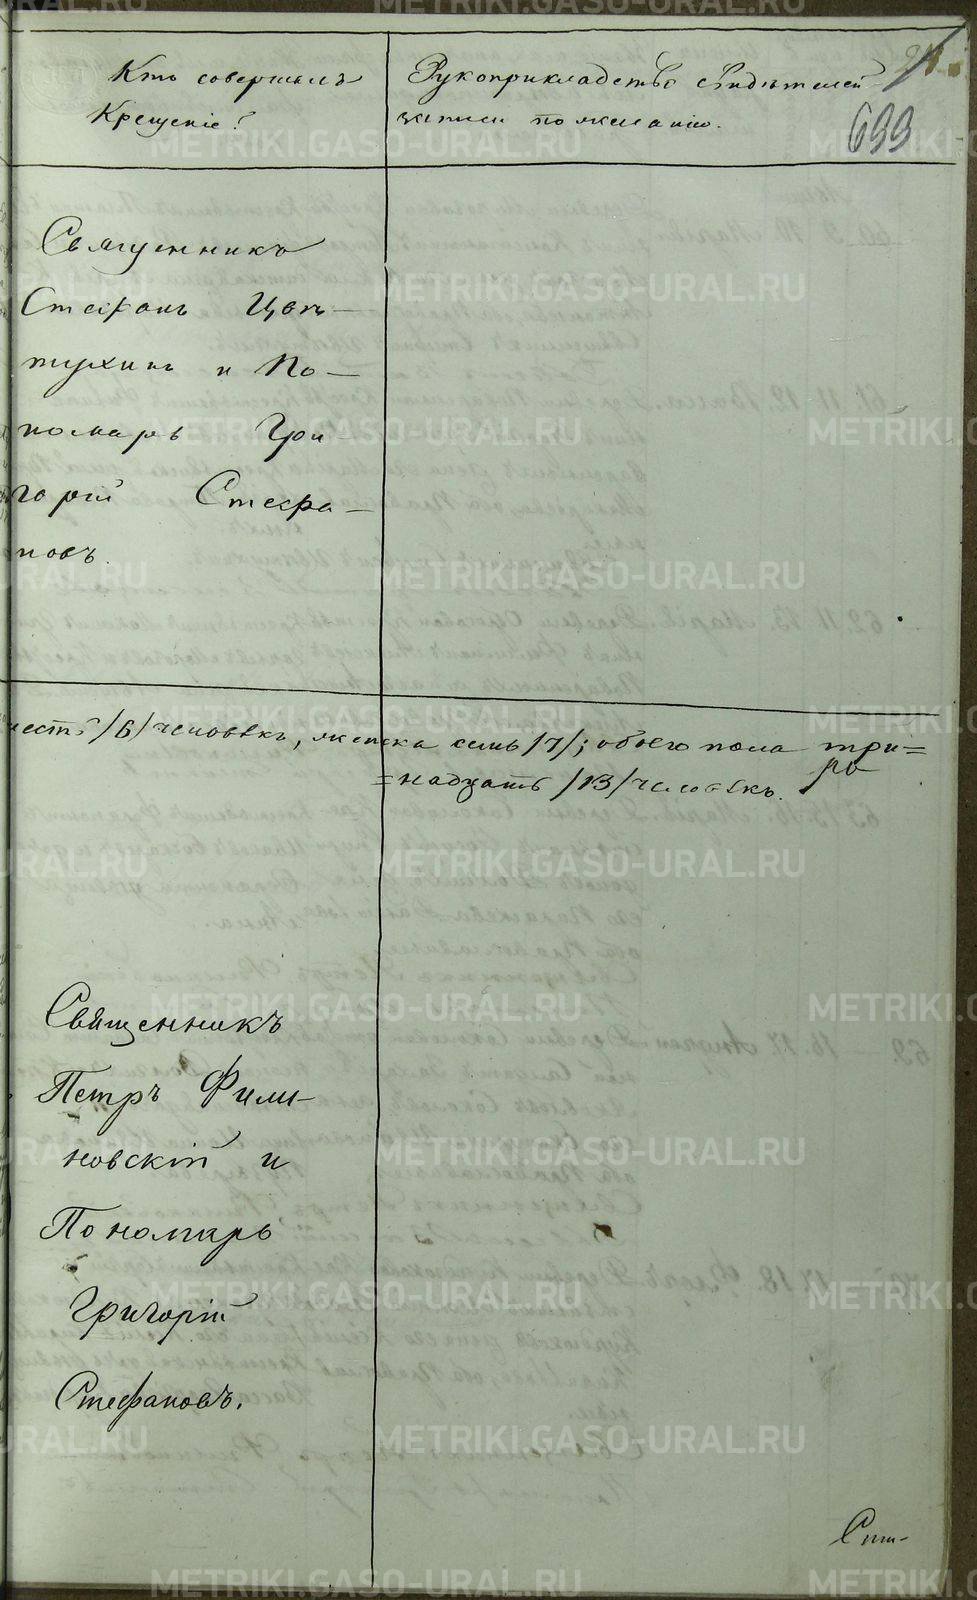 Кто совершалъ
Крещеніе?
Рукоприкладство свидѣтелей
записи по желанію.
699
Священникъ
Стефанъ Цвѣ-
тухинъ и По-
номарь Гри-
горій Стефа-
новъ.
шесть /6/ человѣкъ, женска семь /7/; обоего пола три=
=надцать /13/ человѣкъ.
Священникъ
Петръ Фили-
новскій и
Пономарь
Григорій
Стефановъ.
METRIKI.GASO-URAL.RU